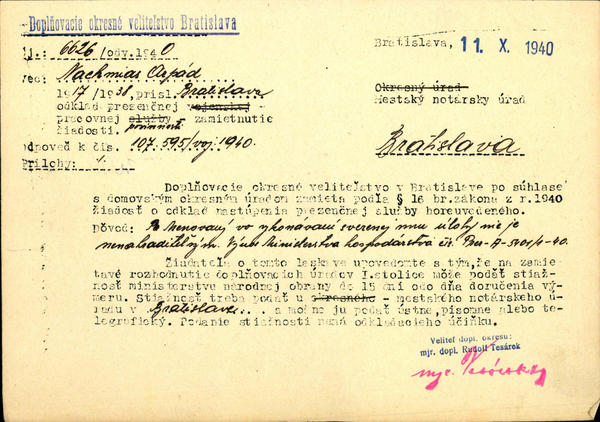 Doplňovacie okresné veliteľstvo Bratislava
Čj.: 6626/odv.1940
Bratislava, 11. X. 1940
Vec: Nachmias Arpád
1917/1938, prísl. Bratislava
odklad prezenčnej vojenskej -
pracovnej služby povinnosti zamietnutie
žiadosti.
Odpoveď k čís. 107.595/voj 1940.
Prílohy:
Okresný úrad
Mestský notársky úrad
Bratislava
Doplňovacie okresné veliteľstvo v Bratislave po súhlase
s domovským okresným úradom zamieta podľa § 16 br.zákona z r.1940
žiadosť o odklad nastúpenia prezenčnej služby horeuvedeného.
Dôvod: Menovaný vo vykonávaní sverenej mu úlohy nie je
nenahraditeľným. Výnos Ministerstva hospodárstva čís. Dôv-A-5401/4-40.
Žiadateľa o tomto láskave upovedomte s tým, že na zamie-
tavé rozhodnutie doplňovacích úradov I.stolice môže podať stiaž-
nosť ministerstvu národnej obrany do 15 dní odo dňa doručenia vý-
meru. Stiažnosť treba podať u okresného - mestského notárskeho ú-
radu v Bratislave... a možno ju podať ústne, písomne alebo te-
legrafický. Podanie stiažnosti nemá odkladacieho účinku.
Veliteľ dopl. okresu:
mjr. dopl. Rudolf Tesárek
mjr. Tesárek